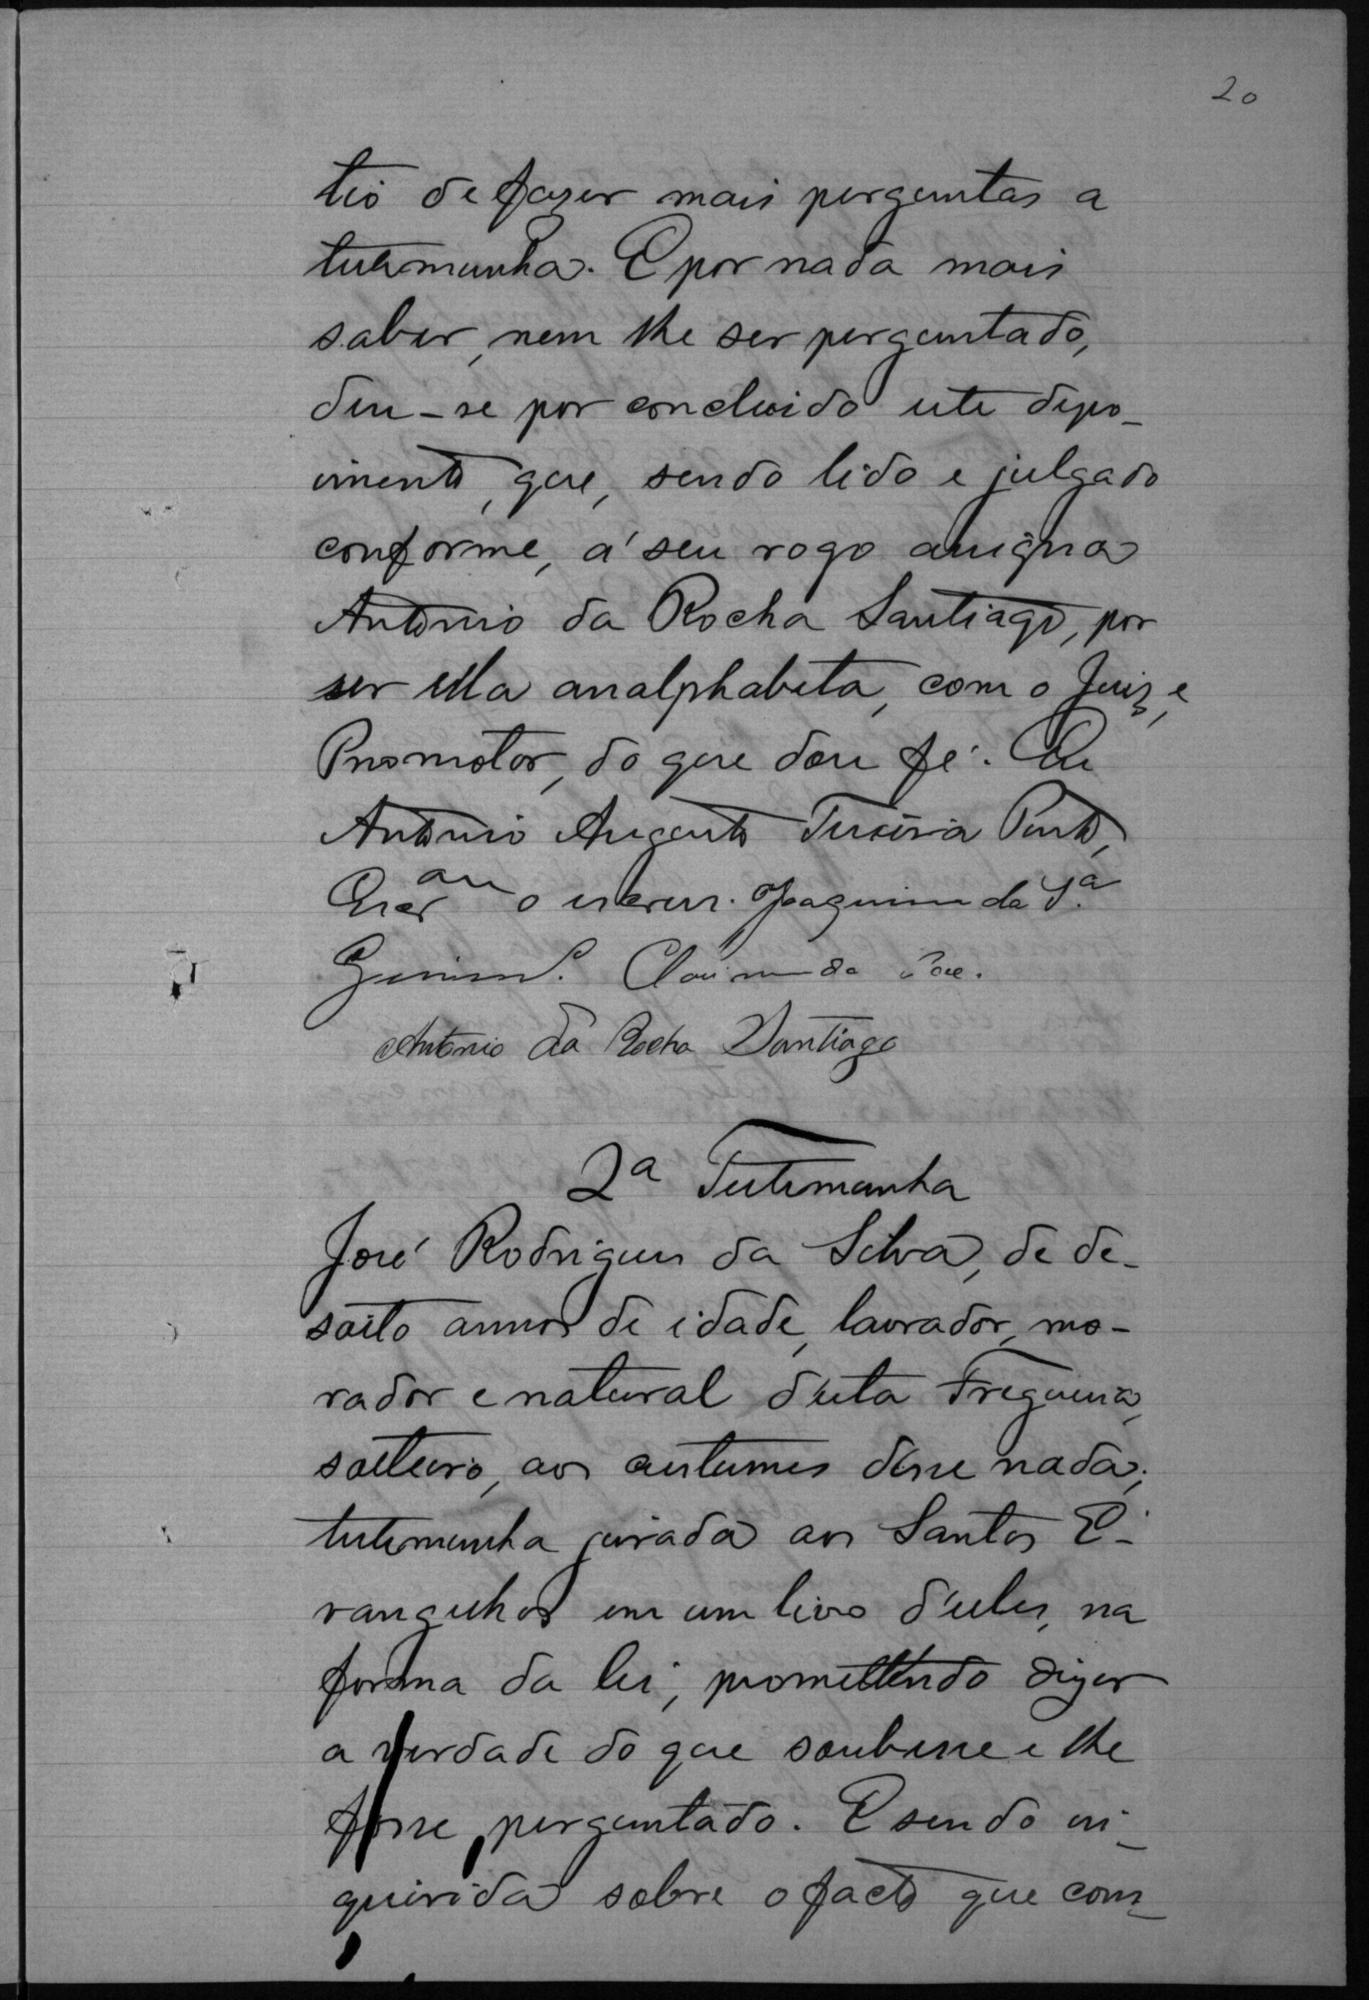 20
tio de fazer mais perguntas a
testemunha. E por nada mais
saber, nem lhe ser perguntado,
deu-se por concluido este depo-
imento, que, sendo lido e julgado
conforme, á seu rogo assigna
Antonio da Rocha Santiago, por
ser ella analphabeta, com o Juiz, e
Promotor, do que dou fé. Eu
Antonio Augusto Teixeira Pinto,
Escram o escrevi. Joaquim da S.a
Antonio da Rocha Santiago
2a Testemunha
José Rodrigues da Silva, de de-
soito annos de idade, lavrador, mo-
rador e natural d'esta Freguesia,
solteiro, aos custumes disse nada;
testemunha jurada aos Santos E-
vangelhos em um livro d'elles, na
forma da lei, promettendo dizer
a verdade do que soubesse e lhe
fosse perguntado. E sendo in-
quirida sobre o facto que cons-